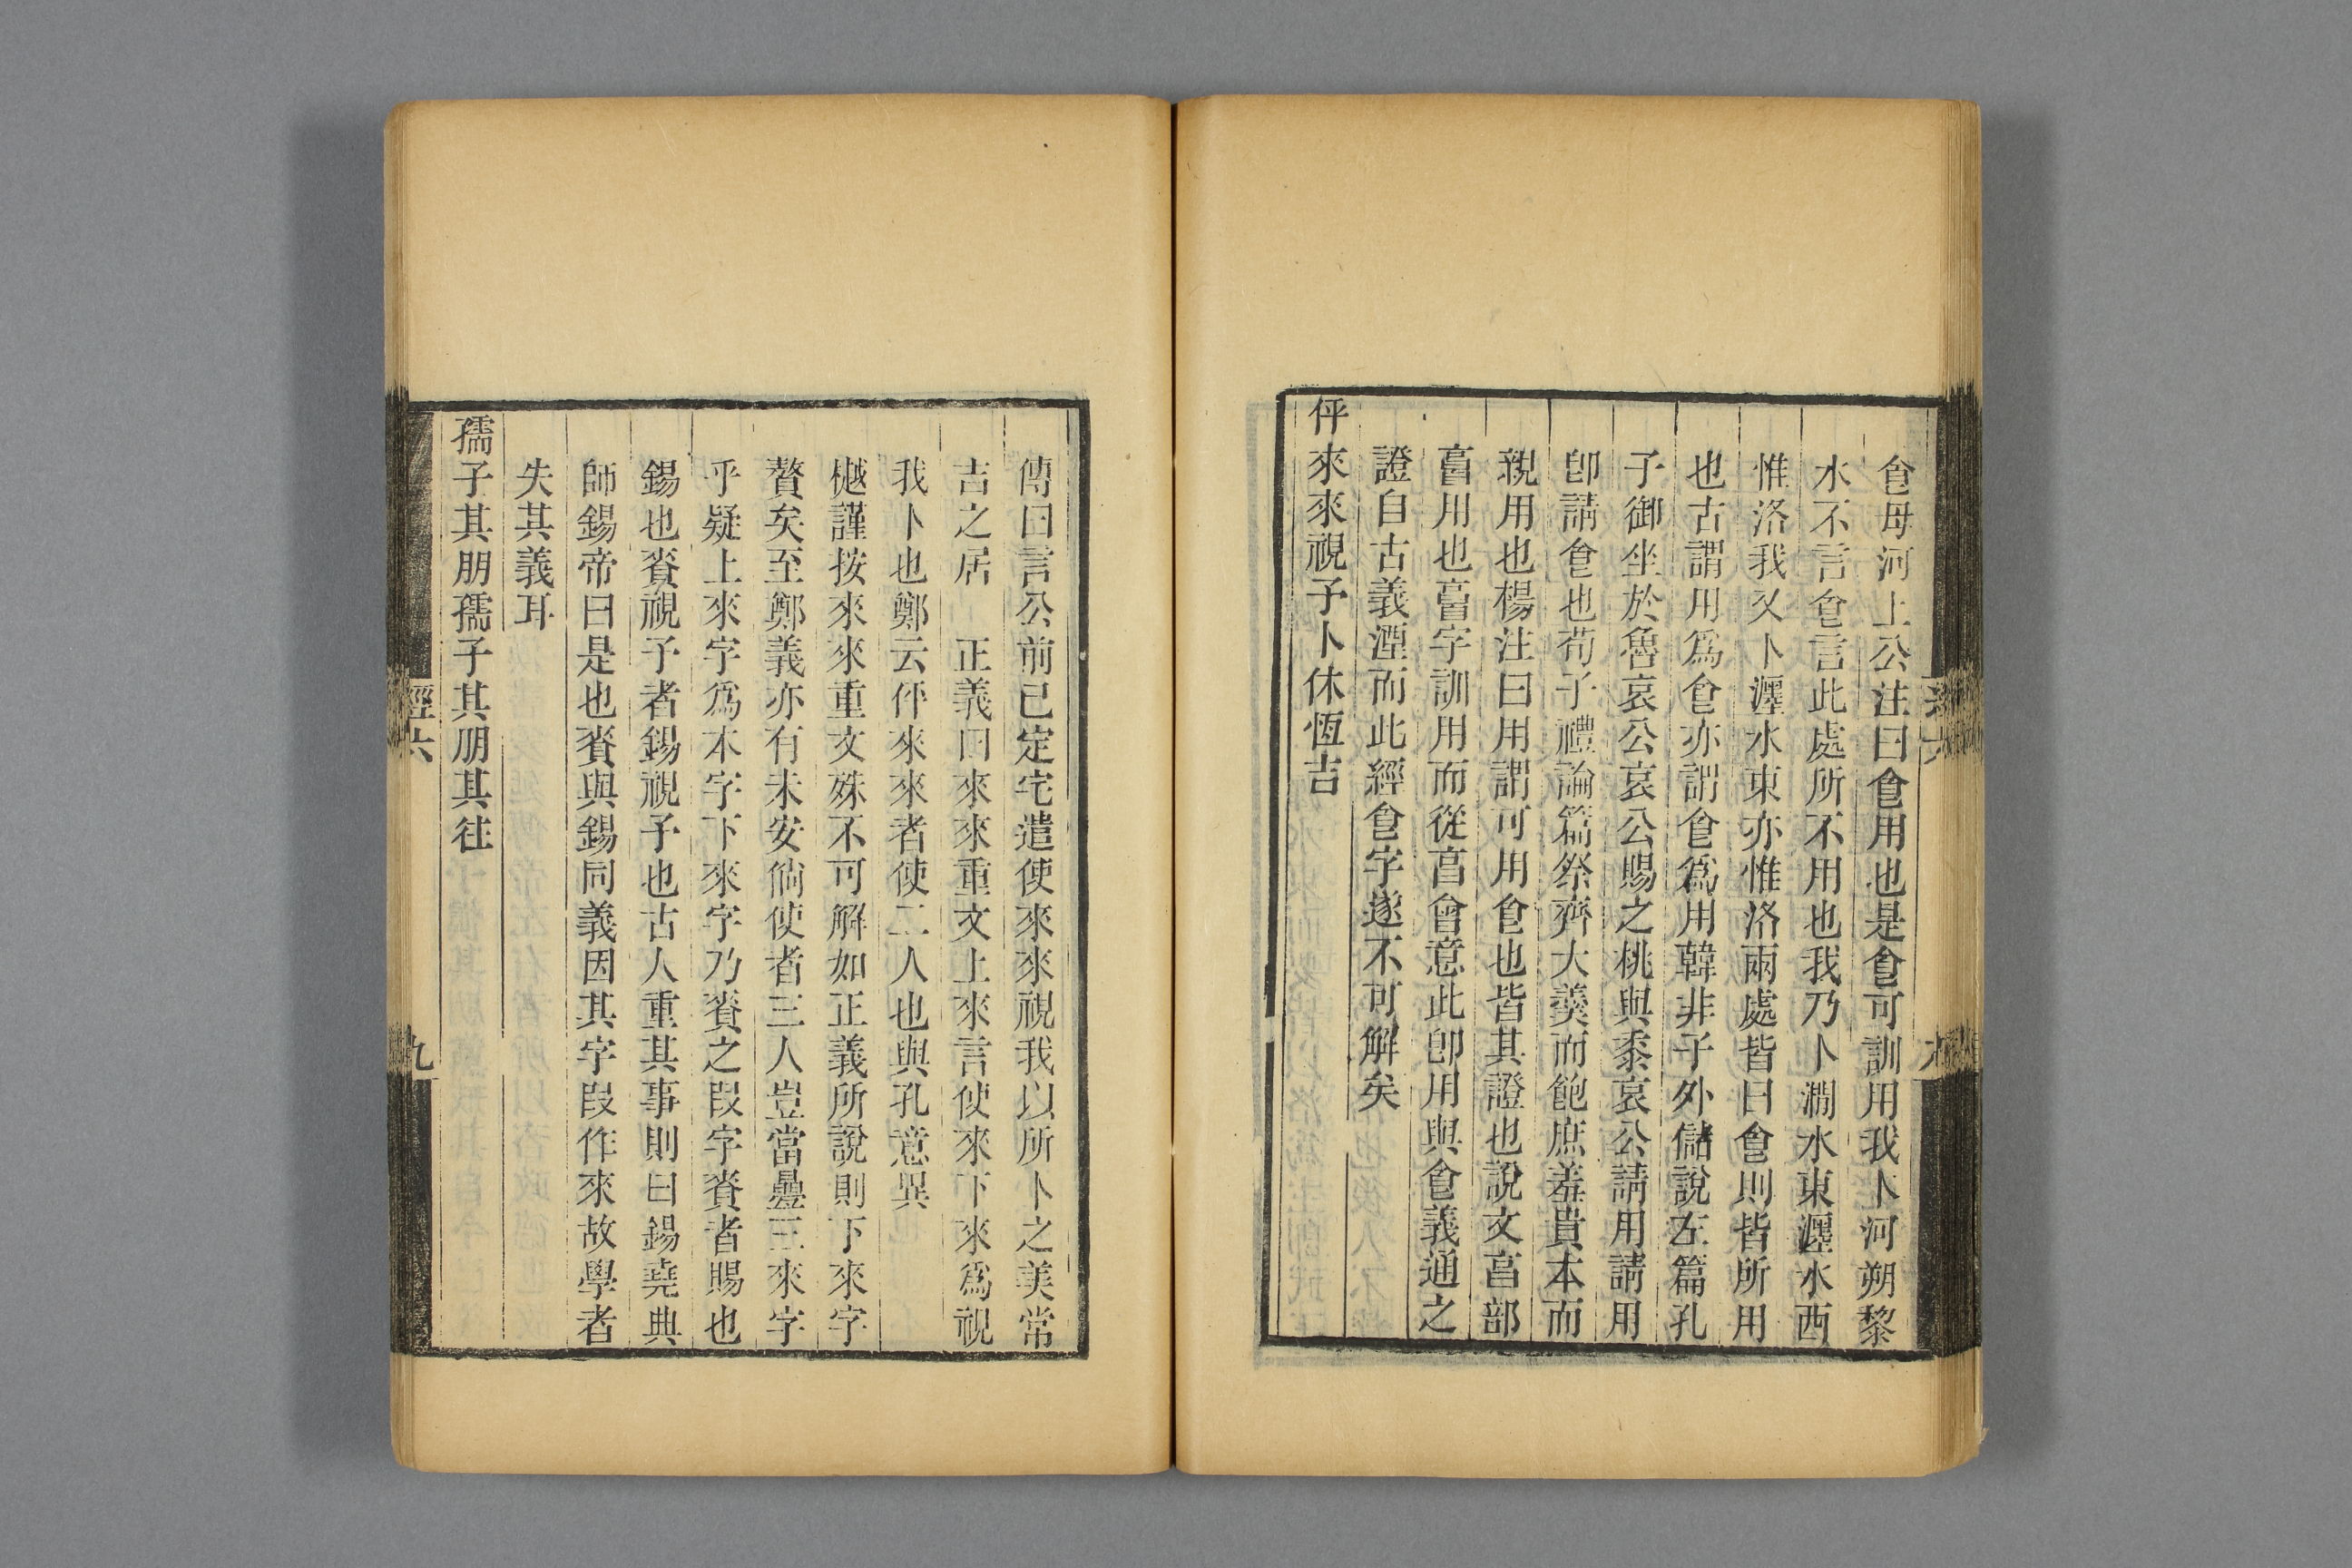 食母河上公注曰食用也是食可訓用我卜河朔黎
水不言食言此處所不用也我乃卜澗水東瀍水西
惟洛我乂卜瀍水東亦惟洛兩處皆曰食則皆所用
也古謂用爲食亦謂食爲用韓非子外儲說左篇孔
子御坐於魯哀公哀公賜之桃與黍哀公請用請用
卽請食也荀子禮論篇祭齊大羹而飽庶羞貴本而
親用也楊注曰用謂可用食也皆其證也說文亯部
𠅷用也𠅷字訓用而從亯會意此卽用與食義通之
證自古義湮而此經食字遂不可解矣
伻來來視予卜休恆吉
傳曰言公前已定宅遣使來來視我以所卜之美常
吉之居 正義曰來來重文上來言使來下來爲視
我卜也鄭云伻來來者使二人也與孔意異
樾謹按來來重文殊不可解如正義所說則下來字
贅矣至鄭義亦有未安倘使者三人豈當疊三來字
乎疑上來字爲本字下來字乃賚之叚字賚者賜也
錫也賚視予者錫視予也古人重其事則曰錫堯典
師錫帝曰是也賚與錫同義因其字叚作來故學者
失其義耳
孺子其朋孺子其朋其往
經六
九